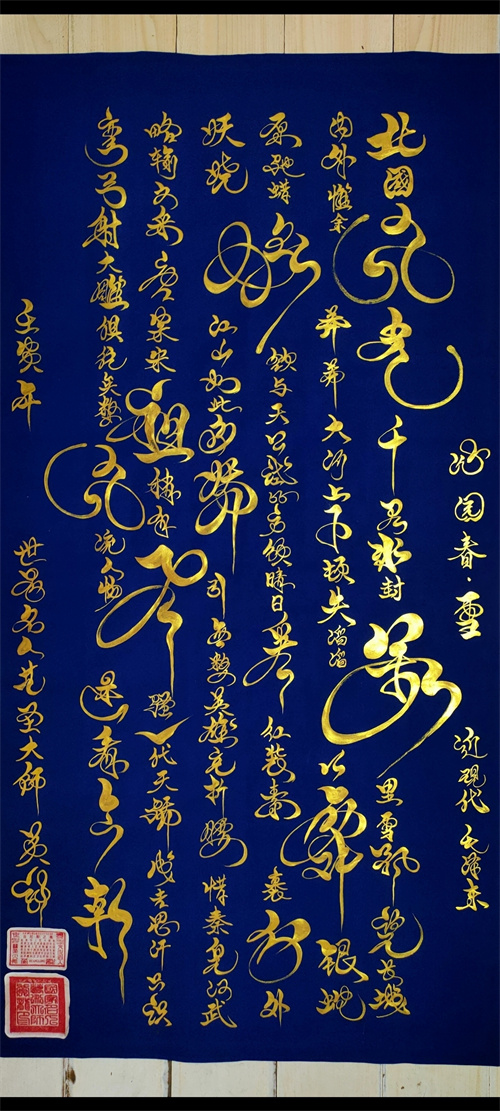 沁园春·雪 近现代 毛泽东
北國风光千里冰封万里雪飘望长城
内外惟余莽莽大河上下顿失滔滔山舞银蛇
原驰蜡象欲与天公试比高须晴日看红装素裹分外
妖娆江山如此多娇引无数英雄竞折腰惜秦皇汉武
略输文采唐宗宋祖稍逊风骚一代天骄成吉思汗只识
弯弓射大雕俱往矣数风流人物还看今朝
壬寅年 世界名人艺圣大师